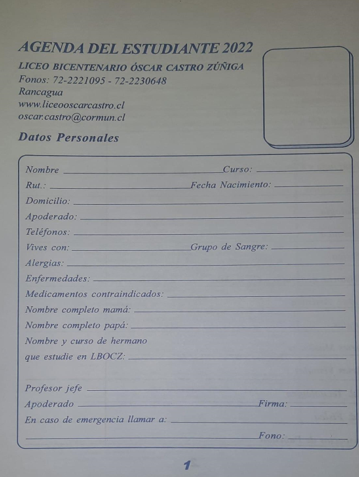 AGENDA DEL ESTUDIANTE 2022
LICEO BICENTENARIO ÓSCAR CASTRO ZÚÑIGA
Fonos: 72-2221095 - 72-2230648
Rancagua
www.liceooscarcastro.cl
oscar.castro@cormun.cl
Datos Personales
Nombre Curso:
Rut.: Fecha Nacimiento:
Domicilio:
Apoderado:
Teléfonos:
Vives con: Grupo de Sangre:
Alergias:
Enfermedades:
Medicamentos contraindicados:
Nombre completo mamá:
Nombre completo papá:
Nombre y curso de hermano
que estudie en LBOCZ:
Profesor jefe
Apoderado Firma:
En caso de emergencia llamar a:
Fono:
1